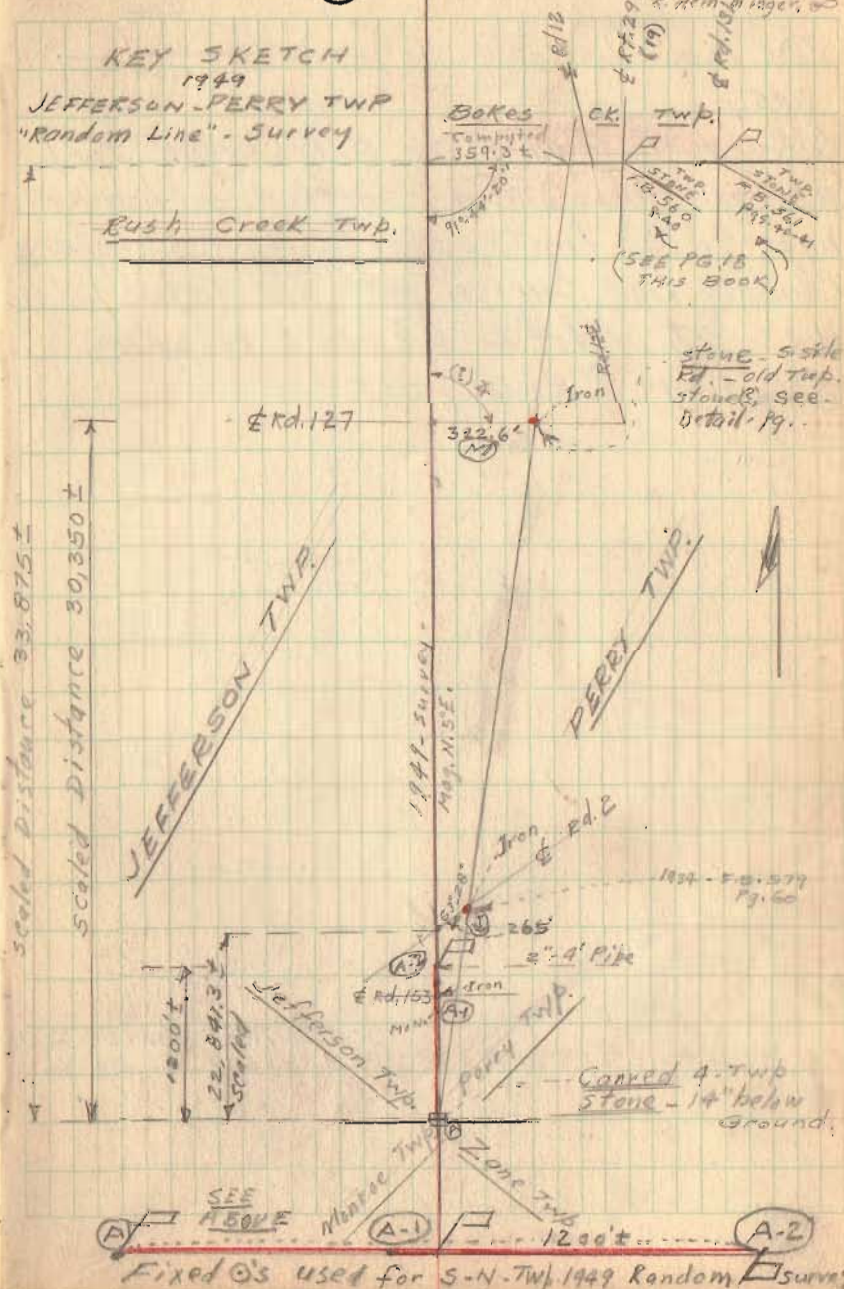 KEY SKETCH
1949
JEFFERSON-PERRY TWP
"Random Line" - Survey
℄ Rd 12
℄ Rt. 29
(19)
℄ Rd. 13
Bokes CK. Twp.
Computed
359.3 ±
91°-44'-20"
TWP.
STONE
F.B. 560
P. 40
TWP.
STONE
F.B. 561
Pgs. 40-41
(SEE PG. 18
THIS BOOK)
Rush Creek Twp.
stone - S. side
Rd. - old Twp.
stone, see
Detail - Pg..
Iron
℄ Rd. 127
322.6'
scaled Distance 33,875 ±
scaled Distance 30,350 ±
JEFFERSON TWP.
PERRY TWP.
1949 - Survey -
Mag. N.5°E.
Iron
℄ Rd. 2
1934 - F.B. 579
Pg. 60
265'
2" - 4' Pipe
A-2
℄ Rd. 153
Iron
A-1
1200' ±
22,841.3 ±
scaled
Jefferson Twp.
Perry Twp.
Carved 4-Twp
Stone - 14" below
Ground.
Monroe Twp.
Zane Twp.
SEE
ABOVE
A
A-1
1200' ±
A-2
Fixed ⊙'s used for S-N-Twp. 1949 Random survey